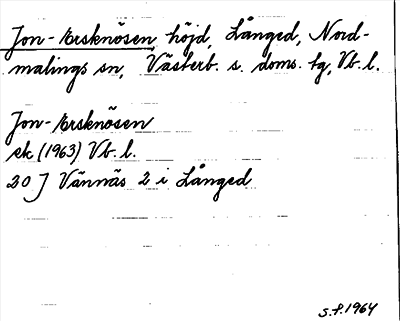 Jon-Ersknösen, höjd, Långed, Nord-
malings sn, Västerb. s. doms. tg, Vb. l.
Jon-Ersknösen
ek (1963) Vb. l.
20 J Vännäs 2 i Långed
S.P. 1964